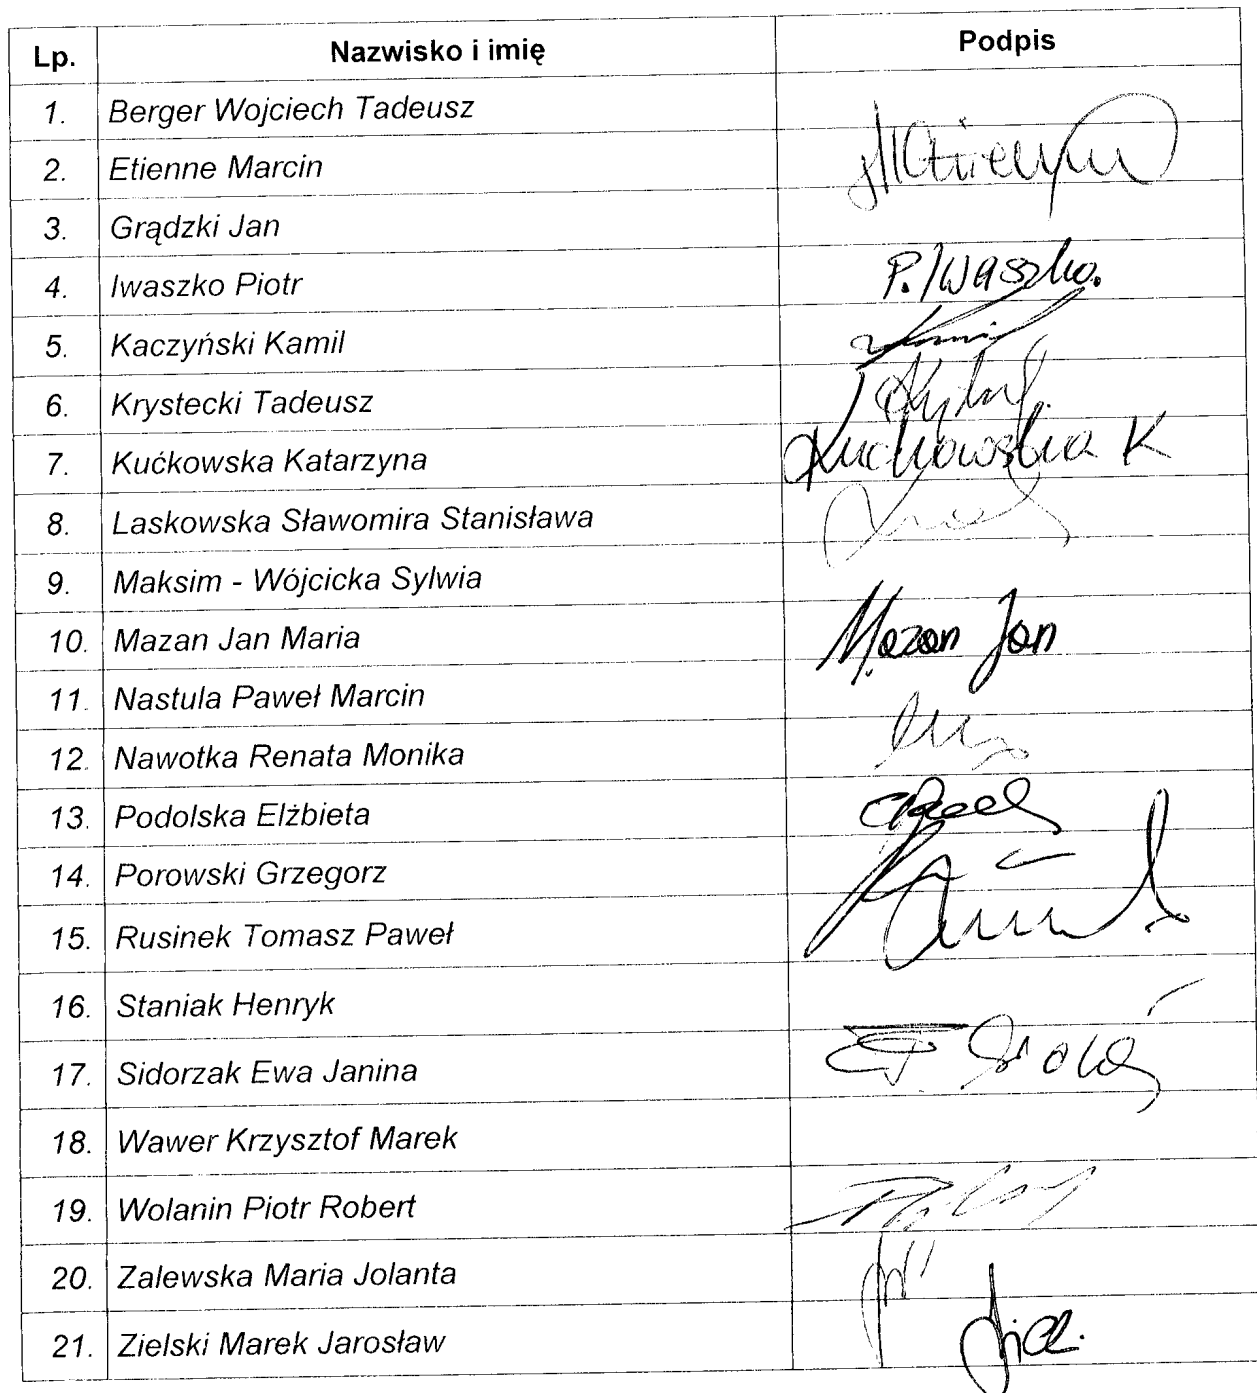 Lp. Nazwisko i imię Podpis
1. Berger Wojciech Tadeusz
2. Etienne Marcin MEtienne
3. Grądzki Jan
4. Iwaszko Piotr P. Iwaszko.
5. Kaczyński Kamil
6. Krystecki Tadeusz
7. Kućkowska Katarzyna Kuckowska K
8. Laskowska Sławomira Stanisława
9. Maksim - Wójcicka Sylwia
10. Mazan Jan Maria Mazan Jan
11. Nastula Paweł Marcin
12. Nawotka Renata Monika
13. Podolska Elżbieta
14. Porowski Grzegorz
15. Rusinek Tomasz Paweł
16. Staniak Henryk
17. Sidorzak Ewa Janina
18. Wawer Krzysztof Marek
19. Wolanin Piotr Robert
20. Zalewska Maria Jolanta
21. Zielski Marek Jarosław